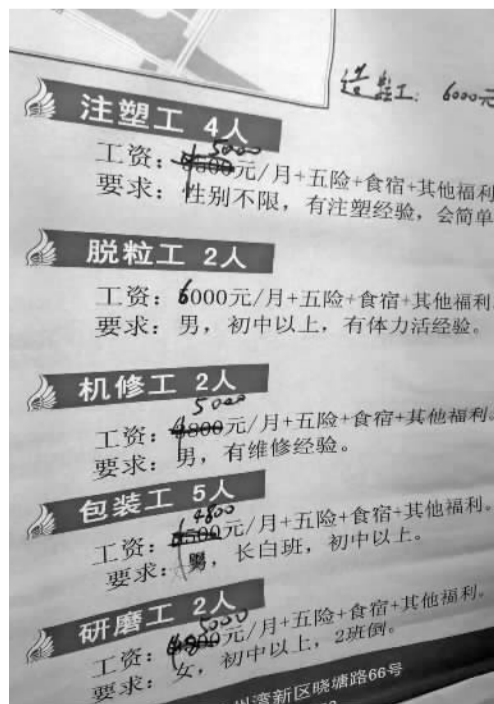 造粒工: 6000元
注塑工 4人
5000
工资: 元/月+五险+食宿+其他福利
要求: 性别不限, 有注塑经验, 会简单
脱粒工 2人
工资: 6000元/月+五险+食宿+其他福利
要求: 男, 初中以上, 有体力活经验。
机修工 2人
5000
工资: 4800元/月+五险+食宿+其他福利。
要求: 男, 有维修经验。
包装工 5人
4800
工资: 4500元/月+五险+食宿+其他福利。
要求: 男, 长白班, 初中以上。
研磨工 2人
5000
工资: 4800元/月+五险+食宿+其他福利。
要求: 女, 初中以上, 2班倒。
湾新区晓塘路66号